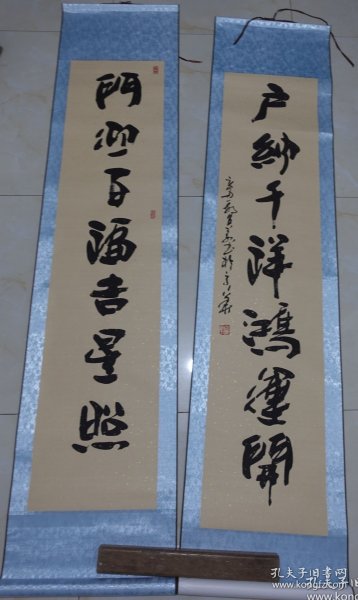 門迎百福吉星照
户納千祥鴻運開
孔夫子旧书网
www.kongfz.com